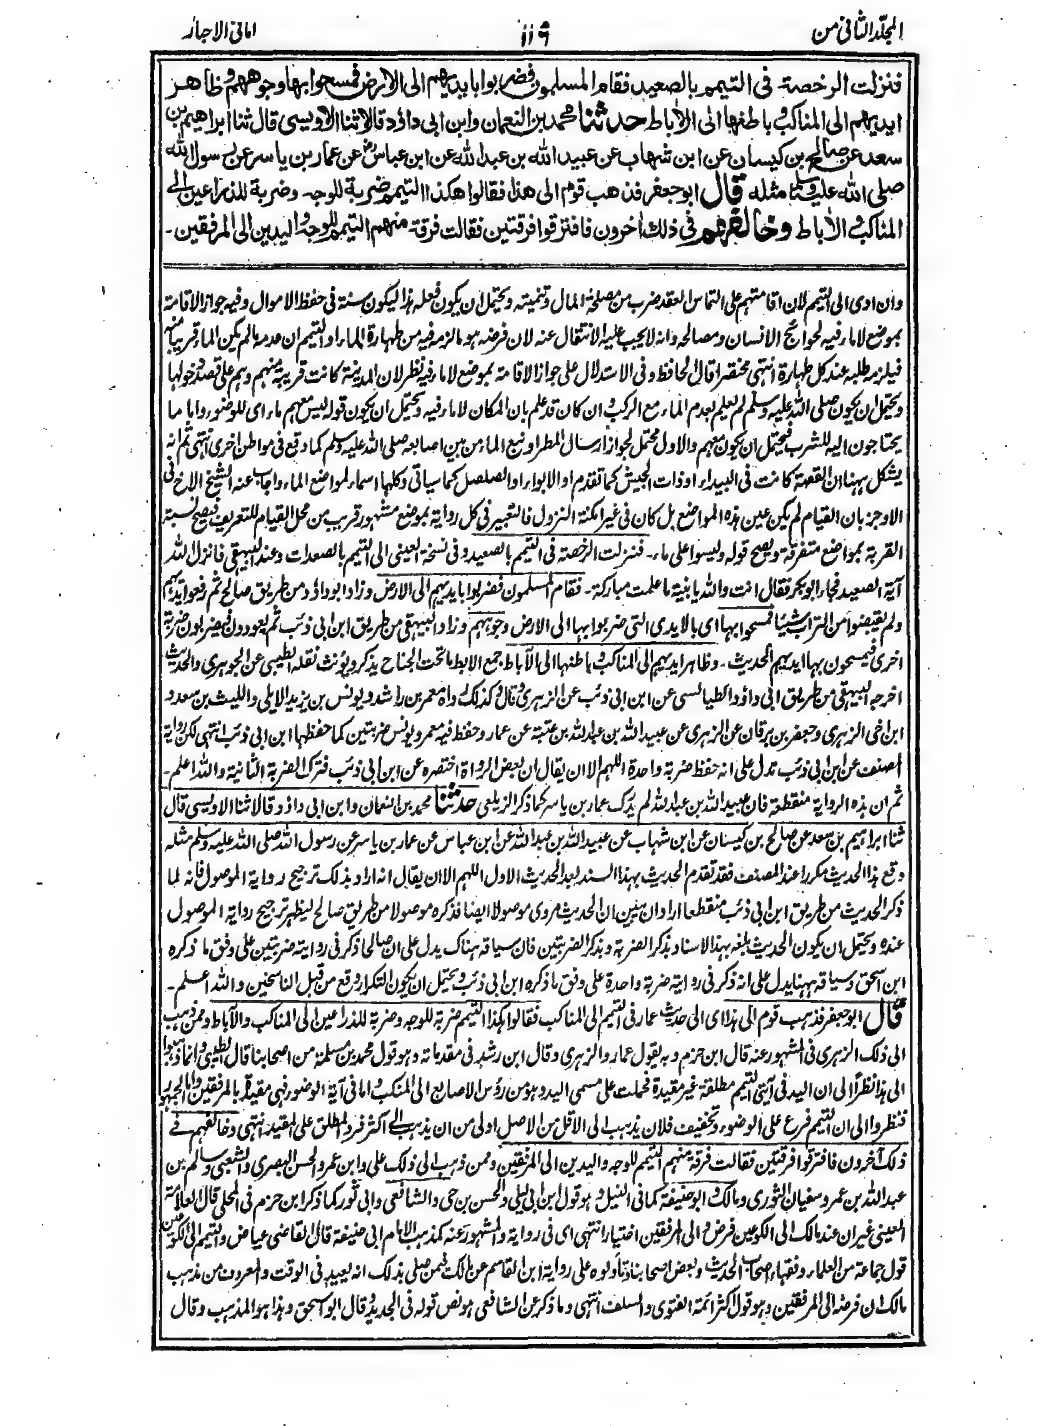 المجلد الثانی من
۱۱۹
امانی الاحبار
فنزلت الرخصة فی التیمم بالصعید فقام المسلمون فضربوا بایدیهم الی الارض فمسحوا بها وجوههم وظاهر
ایدیهم الی المناکب وباطنها الی الآباط حدثنا محمد بن النعمان وابن ابی داؤد قالا ثنا الاویسی قال ثنا ابراهیم بن
سعد عن صالح بن کیسان عن ابن شهاب عن عبید الله بن عبد الله عن ابن عباس عن عمار بن یاسر عن رسول الله
صلی الله علیه وسلم مثله قال ابو جعفر فذهب قوم الی هذا فقالوا هکذا التیمم ضربة للوجه وضربة للذراعین الی
المناکب والآباط وخالفهم فی ذلك آخرون فافترقوا فرقتین فقالت فرقة منهم التیمم للوجه والیدین الی المرفقین۔
وان ادی الی التیمم لان اقامتهم علی التماس العقد ضرب من مصلحة المال وتنمیته ویحتمل ان یکون فعله هذا لیکون سنة فی حفظ الاموال وفیه جواز الاقامة
بموضع لا ماء فیه لحوائج الانسان ومصالحه وانه لا یجب علیه الانتقال عنه لان فرضه هو ما لزمه فیه من طهارة الماء او التیمم ان عدمه ما لم یکن الماء قریبا منه
فیلزمه طلبه عند کل طهارة انتهی مختصرا قال الحافظ وفی الاستدلال علی جواز الاقامة بموضع لا ماء فیه نظر لان المدینة کانت قریبة منهم وهم علی قصد دخولها
ویحتمل ان یکون صلی الله علیه وسلم لم یعلم بعدم الماء مع الرکب وان کان قد علم بان المکان لا ماء فیه ویحتمل ان یکون قوله لیس معهم ماء ای للوضوء واما ما
یحتاجون الیه للشرب فیحتمل ان یکون معهم والاول محتمل لجواز ارسال المطر او نبع الماء من بین اصابعه صلی الله علیه وسلم کما وقع فی مواطن اخری انتهی ثم انه
یشکل ههنا ان القصة کانت فی البیداء او ذات الجیش کما تقدم او الابواء او الصلصل کما سیاتی وکلها اسماء لمواضع الماء واجاب عنه الشیخ الاخ فی
الاوجز بان القیام لم یکن عین هذه المواضع بل کان فی غیر امکنة النزول فالتعبیر فی کل روایة بموضع مشهور قریب من محل القیام للتعریف فیصح نسبته
القریة بمواضع متفرقة ویصح قوله ولیسوا علی ماء۔ فنزلت الرخصة فی التیمم بالصعید وفی نسخة العینی الی التیمم بالصعدات وعند البیهقی فانزل الله
آیة الصعید فجاء ابو بکر فقال انت والله یا بنیة ما علمت مبارکة۔ فقام المسلمون فضربوا بایدیهم الی الارض وزاد ابو داؤد من طریق صالح ثم رفعوا ایدیهم
ولم یقبضوا من التراب شیئا فمسحوا بها ای بالایدی التی ضربوا بها الی الارض وجوههم وزاد البیهقی من طریق ابن ابی ذئب ثم یعودون فیضربون ضربة
اخری فیمسحون بها ایدیهم الحدیث۔ وظاهر ایدیهم الی المناکب وباطنها الی الآباط جمع الابط ما تحت الجناح یذکر ویؤنث نقله الطیبی عن الجوهری والحدیث
اخرجه البیهقی من طریق ابی داؤد الطیالسی عن ابن ابی ذئب عن الزهری وقال وکذلك رواه معمر بن راشد ویونس بن یزید الایلی واللیث بن سعد و
ابن اخی الزهری وجعفر بن برقان عن الزهری عن عبید الله بن عبد الله بن عتبة عن عمار وحفظ فیه معمر ویونس ضربتین کما حفظها ابن ابی ذئب انتهی لکن روایة
المصنف عن ابن ابی ذئب تدل علی انه حفظ ضربة واحدة اللهم الا ان یقال ان بعض الرواة اختصره عن ابن ابی ذئب فترك الضربة الثانیة والله اعلم۔
ثم ان هذه الروایة منقطعة فان عبید الله بن عبد الله لم یدرك عمار بن یاسر کما ذکر الزیلعی حدثنا محمد بن النعمان وابن ابی داؤد قالا ثنا الاویسی قال
ثنا ابراهیم بن سعد عن صالح بن کیسان عن ابن شهاب عن عبید الله بن عبد الله عن ابن عباس عن عمار بن یاسر عن رسول الله صلی الله علیه وسلم مثله
وقع هذا الحدیث مکررا عند المصنف فقد تقدم الحدیث بهذا السند بعد الحدیث الاول اللهم الا ان یقال انه اراد بذلك ترجیح روایة الموصول فانه لما
ذکر الحدیث من طریق ابن ابی ذئب منقطعا اراد ان یبین ان الحدیث مروی موصولا ایضا فذکره موصولا من طریق صالح لیظهر ترجیح روایة الموصول
عنده ویحتمل ان یکون الحدیث بلغه بهذا الاسناد بذکر الضربة وبذکر الضربتین فان سیاقه هناك یدل علی ان صالحا ذکر فی روایته ضربتین علی وفق ما ذکره
ابن اسحق وسیاقه ههنا یدل علی انه ذکر فی روایة ضربة واحدة علی وفق ما ذکره ابن ابی ذئب ویحتمل ان یکون التکرار وقع من قبل الناسخین والله اعلم۔
قال ابو جعفر فذهب قوم الی هذا ای الی حدیث عمار فی التیمم الی المناکب فقالوا هکذا التیمم ضربة للوجه وضربة للذراعین الی المناکب والآباط وممن ذهب
الی ذلك الزهری فی المشهور عنه قال ابن حزم وبه یقول عمار والزهری وقال ابن رشد فی مقدماته وهو قول محمد بن مسلمة من اصحابنا قال الطیبی وانما ذهبوا
الی هذا نظرا الی ان الید فی آیتی التیمم مطلقة غیر مقیدة فحملت علی مسمی الید وهو من رؤس الاصابع الی المنکب واما فی آیة الوضوء فهی مقیدة بالمرفقین واما الجمهور
فنظروا الی ان التیمم فرع علی الوضوء وتخفیف فلان یذهب الی الاقل من الاصل اولی من ان یذهب الی اکثر فرد المطلق علی المقید انتهی وخالفهم فی
ذلك آخرون فافترقوا فرقتین فقالت فرقة منهم التیمم للوجه والیدین الی المرفقین وممن ذهب الی ذلك علی وابن عمر والحسن البصری والشعبی وسالم بن
عبد الله بن عمر وسفیان الثوری ومالك وابو حنیفة کما فی النیل وهو قول ابن ابی لیلی والحسن بن حی والشافعی وابی ثور کما ذکر ابن حزم فی المحلی قال العلامة
العینی غیر ان عند مالك الی الکوعین فرض والی المرفقین اختیار انتهی ای فی روایة والمشهور عنه کمذهب الامام ابی حنیفة قال القاضی عیاض والتیمم الی الکوعین
قول جماعة من العلماء وفقهاء اصحاب الحدیث وبعض اصحابنا وتأولوه علی روایة ابن القاسم عن مالك فیمن صلی بذلك انه یعید فی الوقت والمعروف من مذهب
مالك ان فرضه الی المرفقین وهو قول اکثر ائمة الفتوی والسلف انتهی وما ذکر عن الشافعی هو نص قوله فی الجدید وقال ابو اسحق وهذا هو المذهب وقال